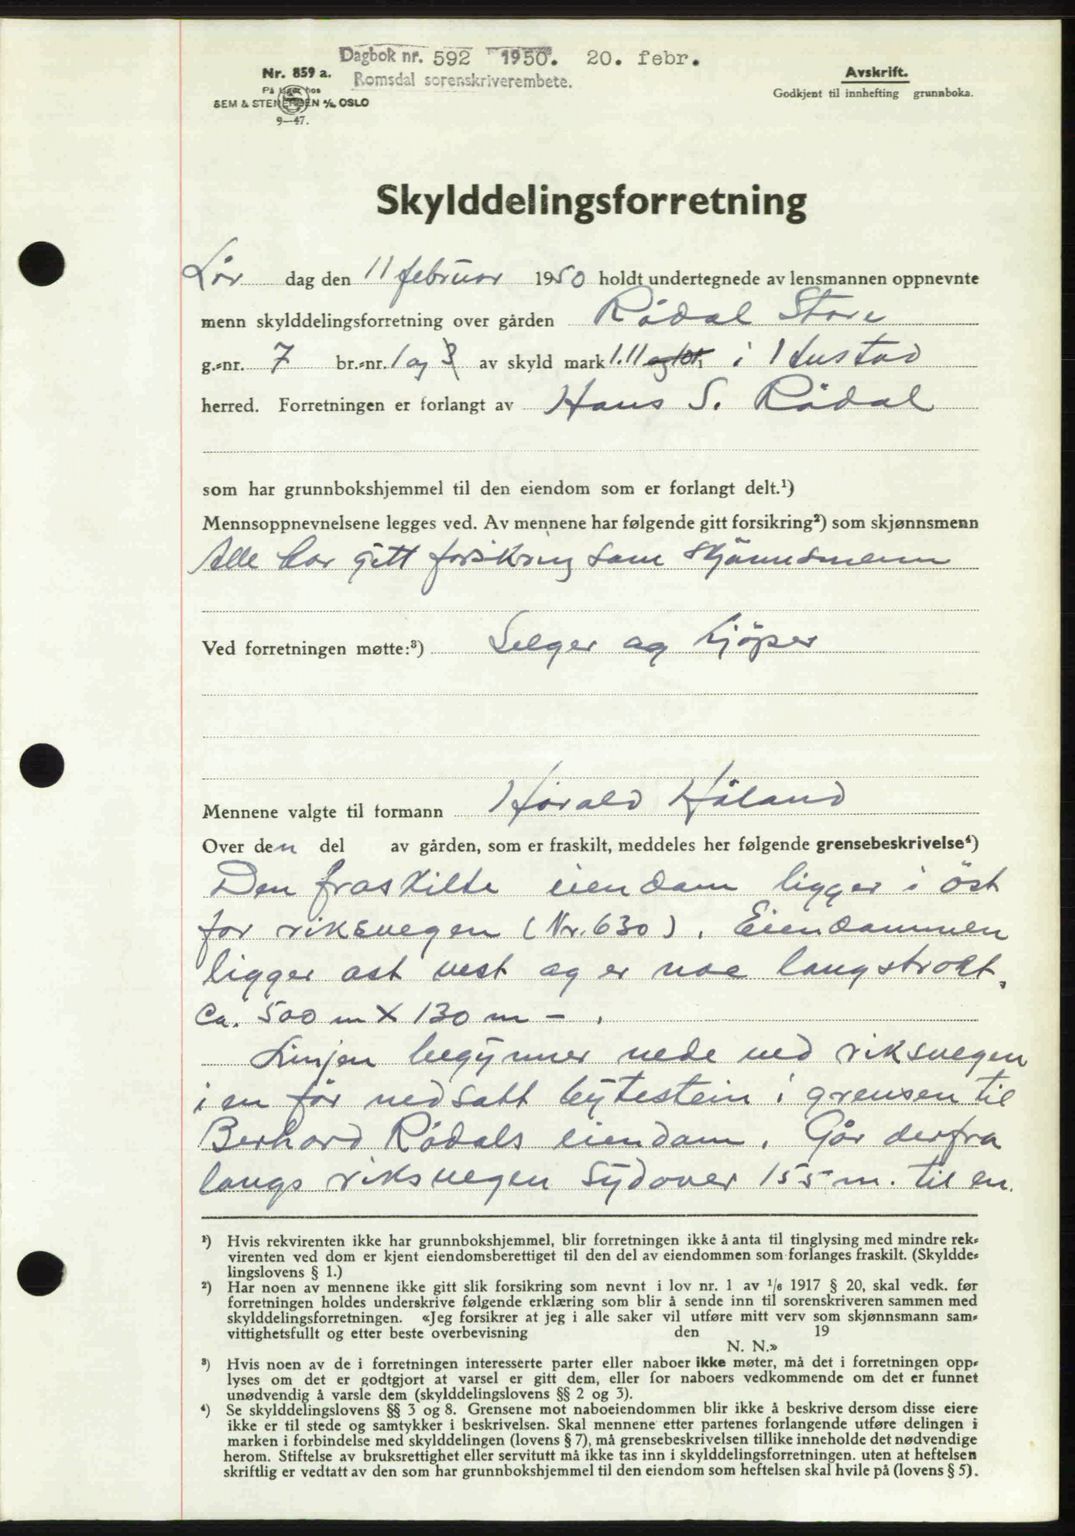 Dagbok nr. 592 1950. 20. febr.
Romsdal sorenskriverembete.
Nr. 859 a.
På lager hos
SEM & STENERSEN A/S, OSLO
9—47.
Avskrift.
Godkjent til innhefting grunnboka.
Skylddelingsforretning
Lør dag den 11 februar 1950 holdt undertegnede av lensmannen oppnevnte
menn skylddelingsforretning over gården Rødal Store
g.-nr. 7 br.-nr. 1 og 3 av skyld mark 1.11 i Hustad
herred. Forretningen er forlangt av Hans S. Rødal
som har grunnbokshjemmel til den eiendom som er forlangt delt.¹)
Mennsoppnevnelsene legges ved. Av mennene har følgende gitt forsikring²) som skjønnsmenn
Alle har gitt forsikring som skjønnsmenn
Ved forretningen møtte:³) Selger og kjöper
Mennene valgte til formann Harald Håland
Over den del av gården, som er fraskilt, meddeles her følgende grensebeskrivelse⁴)
Den fraskilte eiendom ligger i öst
for riksvegen (Nr. 630). Eiendommen
ligger ost vest og er noe langstrakt,
Ca. 500 m X 130 m - .
Linjen begynner nede ved riksvegen
i en før nedsatt bytestein i grensen til
Berhard Rødals eiendom. Går derfra
langs riksvegen sydover 155 m. til en
¹) Hvis rekvirenten ikke har grunnbokshjemmel, blir forretningen ikke å anta til tinglysing med mindre rek-
virenten ved dom er kjent eiendomsberettiget til den del av eiendommen som forlanges fraskilt. (Skyldde-
lingslovens § 1.)
²) Har noen av mennene ikke gitt slik forsikring som nevnt i lov nr. 1 av 1/6 1917 § 20, skal vedk. før
forretningen holdes underskrive følgende erklæring som blir å sende inn til sorenskriveren sammen med
skylddelingsforretningen. «Jeg forsikrer at jeg i alle saker vil utføre mitt verv som skjønnsmann sam-
vittighetsfullt og etter beste overbevisning den 19
N. N.»
³) Hvis noen av de i forretningen interesserte parter eller naboer ikke møter, må det i forretningen opp-
lyses om det er godtgjort at varsel er gitt dem, eller for naboers vedkommende om det er funnet
unødvendig å varsle dem (skylddelingslovens §§ 2 og 3).
⁴) Se skylddelingslovens §§ 3 og 8. Grensene mot naboeiendommen blir ikke å beskrive dersom disse eiere
ikke er til stede og samtykker i beskrivelsen. Skal mennene etter partenes forlangende utføre delingen i
marken i forbindelse med skylddelingen (lovens § 7), må grensebeskrivelsen tillike inneholde det nødvendige
herom. Stiftelse av bruksrettighet eller servitutt må ikke tas inn i skylddelingsforretningen. uten at heftelsen
skriftlig er vedtatt av den som har grunnbokshjemmel til den eiendom som heftelsen skal hvile på (lovens § 5).